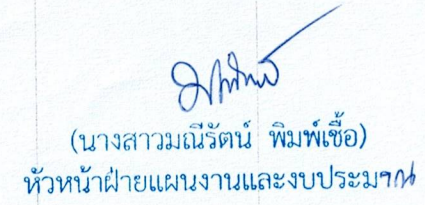 (นางสาวมณีรัตน์ พิมพ์เชื้อ)
หัวหน้าฝ่ายแผนงานและงบประมาณ